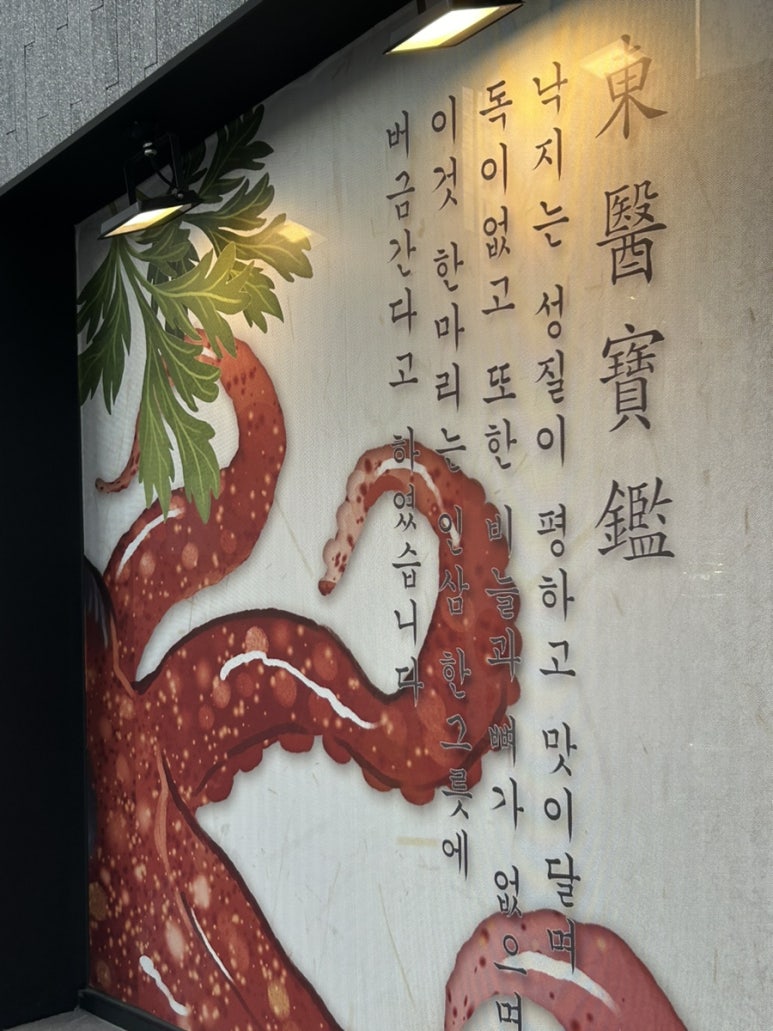 東醫寶鑑
낙지는 성질이 평하고 맛이달며
독이없고 또한 비늘과 뼈가 없으며
이것 한마리는 인삼 한그릇에
버금간다고 하였습니다